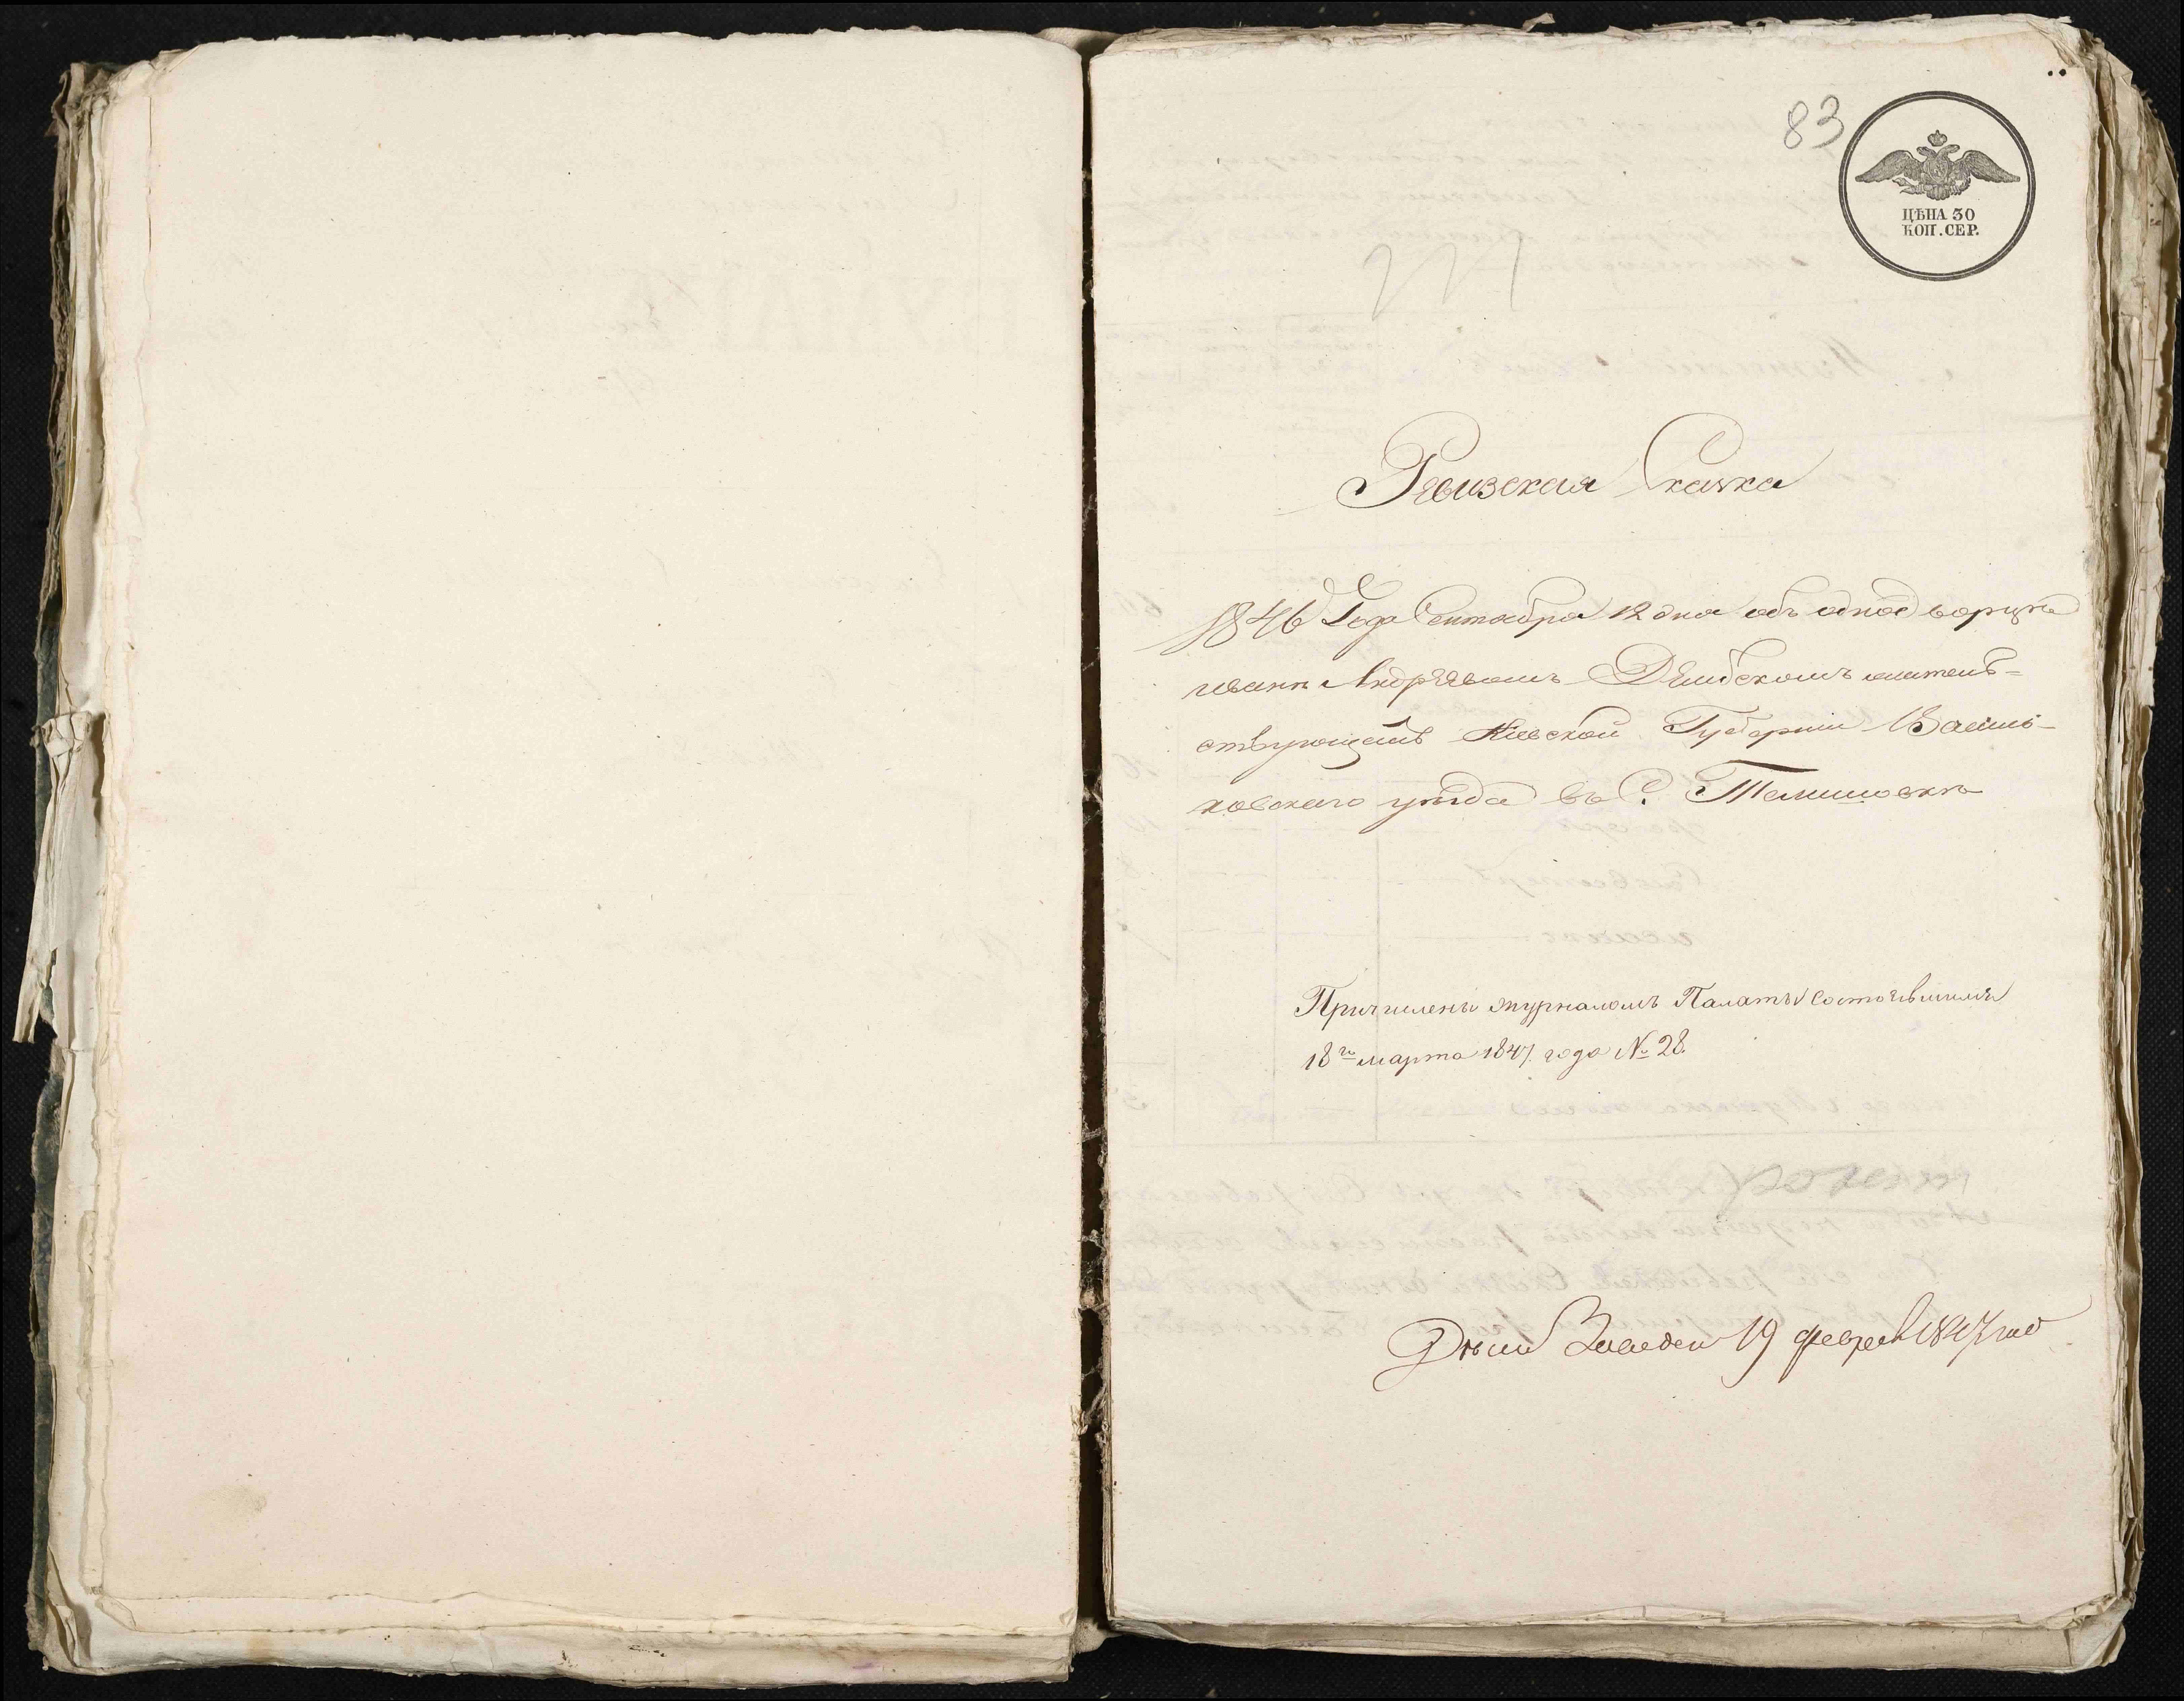 83
ЦѢНА 30
КОП. СЕР.
Ревизская Сказка
1846 Года Сентября 12 дня объ однодворцѣ
иванѣ Андреевомъ Дембскомъ жительствующемъ Кіевской Губерніи Васильковскаго уѣзда въ С. Телишовкѣ
Причислены журналомъ Палаты состоявшимся
18го марта 1847 года № 28.
19 февраля 1847 года